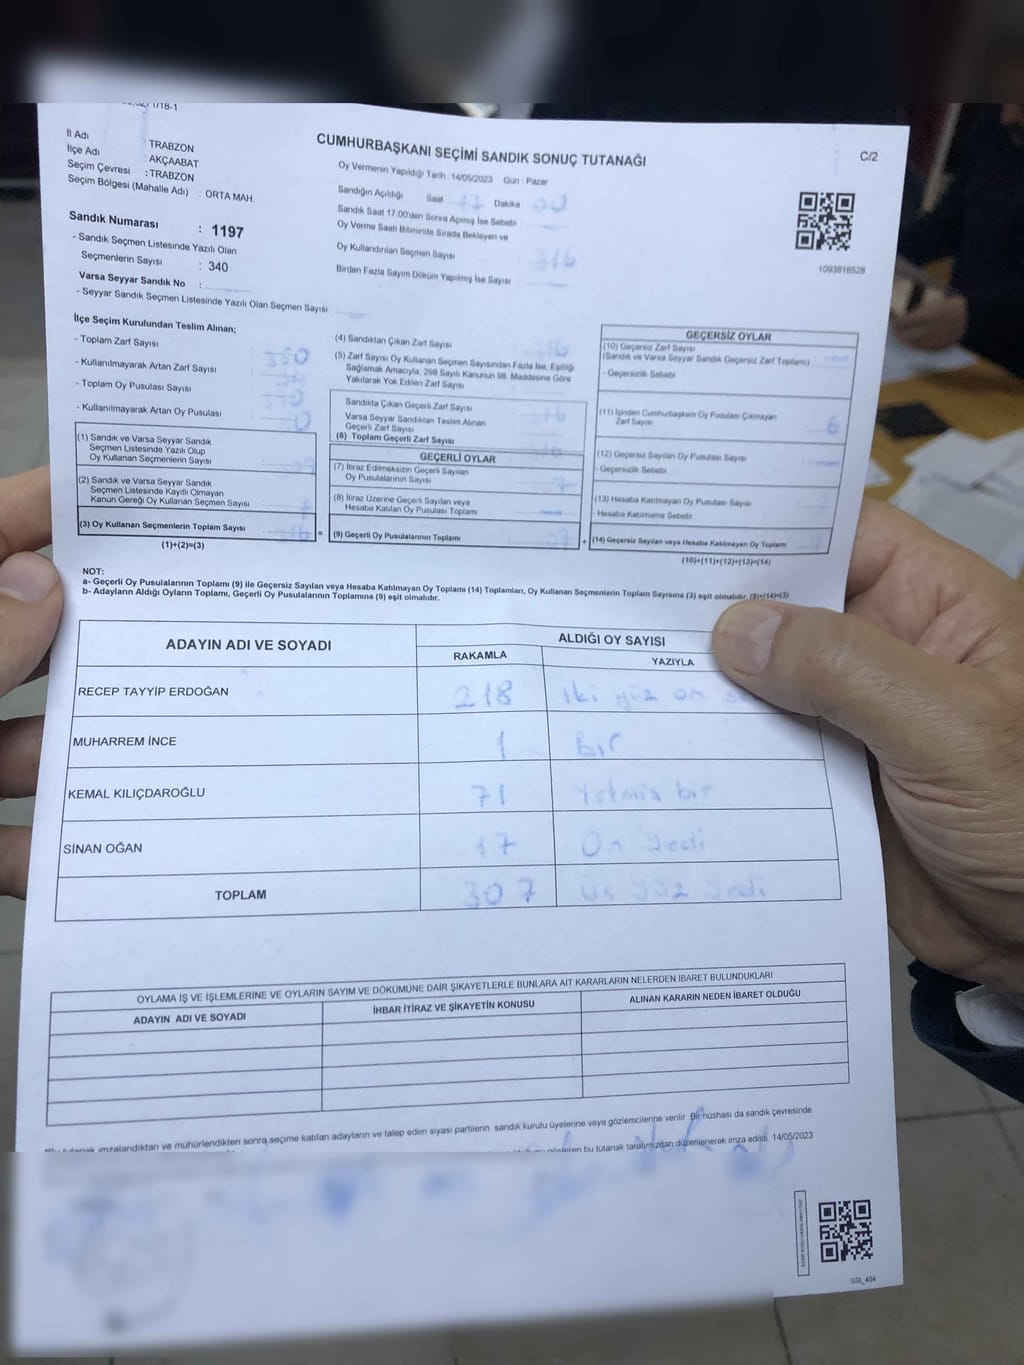 CUMHURBAŞKANI SEÇİMİ SANDIK SONUÇ TUTANAĞI
C/2
İl Adı : TRABZON
İlçe Adı : AKÇAABAT
Seçim Çevresi : TRABZON
Seçim Bölgesi (Mahalle Adı) : ORTA MAH.
Sandık Numarası : 1197
- Sandık Seçmen Listesinde Yazılı Olan
Seçmenlerin Sayısı : 340
Varsa Seyyar Sandık No :
- Seyyar Sandık Seçmen Listesinde Yazılı Olan Seçmen Sayısı
Oy Vermenin Yapıldığı Tarih : 14/05/2023 Gün : Pazar
Sandığın Açıldığı Saat 17 Dakika 00
Sandık Saat 17:00'den Sonra Açılmış İse Sebebi
Oy Verme Saati Bitiminde Sırada Bekleyen ve
Oy Kullandırılan Seçmen Sayısı 316
Birden Fazla Sayım Döküm Yapılmış İse Sayısı
1093818528
İlçe Seçim Kurulundan Teslim Alınan;
- Toplam Zarf Sayısı
- Kullanılmayarak Artan Zarf Sayısı
- Toplam Oy Pusulası Sayısı
- Kullanılmayarak Artan Oy Pusulası
(1) Sandık ve Varsa Seyyar Sandık
Seçmen Listesinde Yazılı Olup
Oy Kullanan Seçmenlerin Sayısı
(2) Sandık ve Varsa Seyyar Sandık
Seçmen Listesinde Kayıtlı Olmayan
Kanun Gereği Oy Kullanan Seçmen Sayısı
(3) Oy Kullanan Seçmenlerin Toplam Sayısı
(1)+(2)=(3)
(4) Sandıktan Çıkan Zarf Sayısı
(5) Zarf Sayısı Oy Kullanan Seçmen Sayısından Fazla İse, Eşitliği
Sağlamak Amacıyla, 298 Sayılı Kanunun 98. Maddesine Göre
Yakılarak Yok Edilen Zarf Sayısı
Sandıkta Çıkan Geçerli Zarf Sayısı
Varsa Seyyar Sandıktan Teslim Alınan
Geçerli Zarf Sayısı
(6) Toplam Geçerli Zarf Sayısı
GEÇERLİ OYLAR
(7) İtiraz Edilmeksizin Geçerli Sayılan
Oy Pusulalarının Sayısı
(8) İtiraz Üzerine Geçerli Sayılan veya
Hesaba Katılan Oy Pusulası Toplamı
= (9) Geçerli Oy Pusulalarının Toplamı
GEÇERSİZ OYLAR
(10) Geçersiz Zarf Sayısı
(Sandık ve Varsa Seyyar Sandık Geçersiz Zarf Toplamı)
- Geçersizlik Sebebi
(11) İçinden Cumhurbaşkanı Oy Pusulası Çıkmayan
Zarf Sayısı
(12) Geçersiz Sayılan Oy Pusulası Sayısı
- Geçersizlik Sebebi
(13) Hesaba Katılmayan Oy Pusulası Sayısı
- Hesaba Katılmama Sebebi
+ (14) Geçersiz Sayılan veya Hesaba Katılmayan Oy Toplamı
(10)+(11)+(12)+(13)=(14)
NOT:
a- Geçerli Oy Pusulalarının Toplamı (9) ile Geçersiz Sayılan veya Hesaba Katılmayan Oy Toplamı (14) Toplamları, Oy Kullanan Seçmenlerin Toplam Sayısına (3) eşit olmalıdır. (9)+(14)=(3)
b- Adayların Aldığı Oyların Toplamı, Geçerli Oy Pusulalarının Toplamına (9) eşit olmalıdır.
ADAYIN ADI VE SOYADI
ALDIĞI OY SAYISI
RAKAMLA
YAZIYLA
RECEP TAYYİP ERDOĞAN 218 iki yüz on
MUHARREM İNCE 1 Bir
KEMAL KILIÇDAROĞLU 71 Yetmiş bir
SİNAN OĞAN 17 On yedi
TOPLAM 307 üç yüz yedi
OYLAMA İŞ VE İŞLEMLERİNE VE OYLARIN SAYIM VE DÖKÜMÜNE DAİR ŞİKAYETLERLE BUNLARA AİT KARARLARIN NELERDEN İBARET BULUNDUKLARI
ADAYIN ADI VE SOYADI
İHBAR İTİRAZ VE ŞİKAYETİN KONUSU
ALINAN KARARIN NEDEN İBARET OLDUĞU
tutanak imzalandıktan ve mühürlendikten sonra seçime katılan adayların ve talep eden siyasi partilerin sandık kurulu üyelerine veya gözlemcilerine verilir Bir nüshası da sandık çevresinde
bu tutanak tarafımızdan düzenlenerek imza edildi 14/05/2023
SSI_404